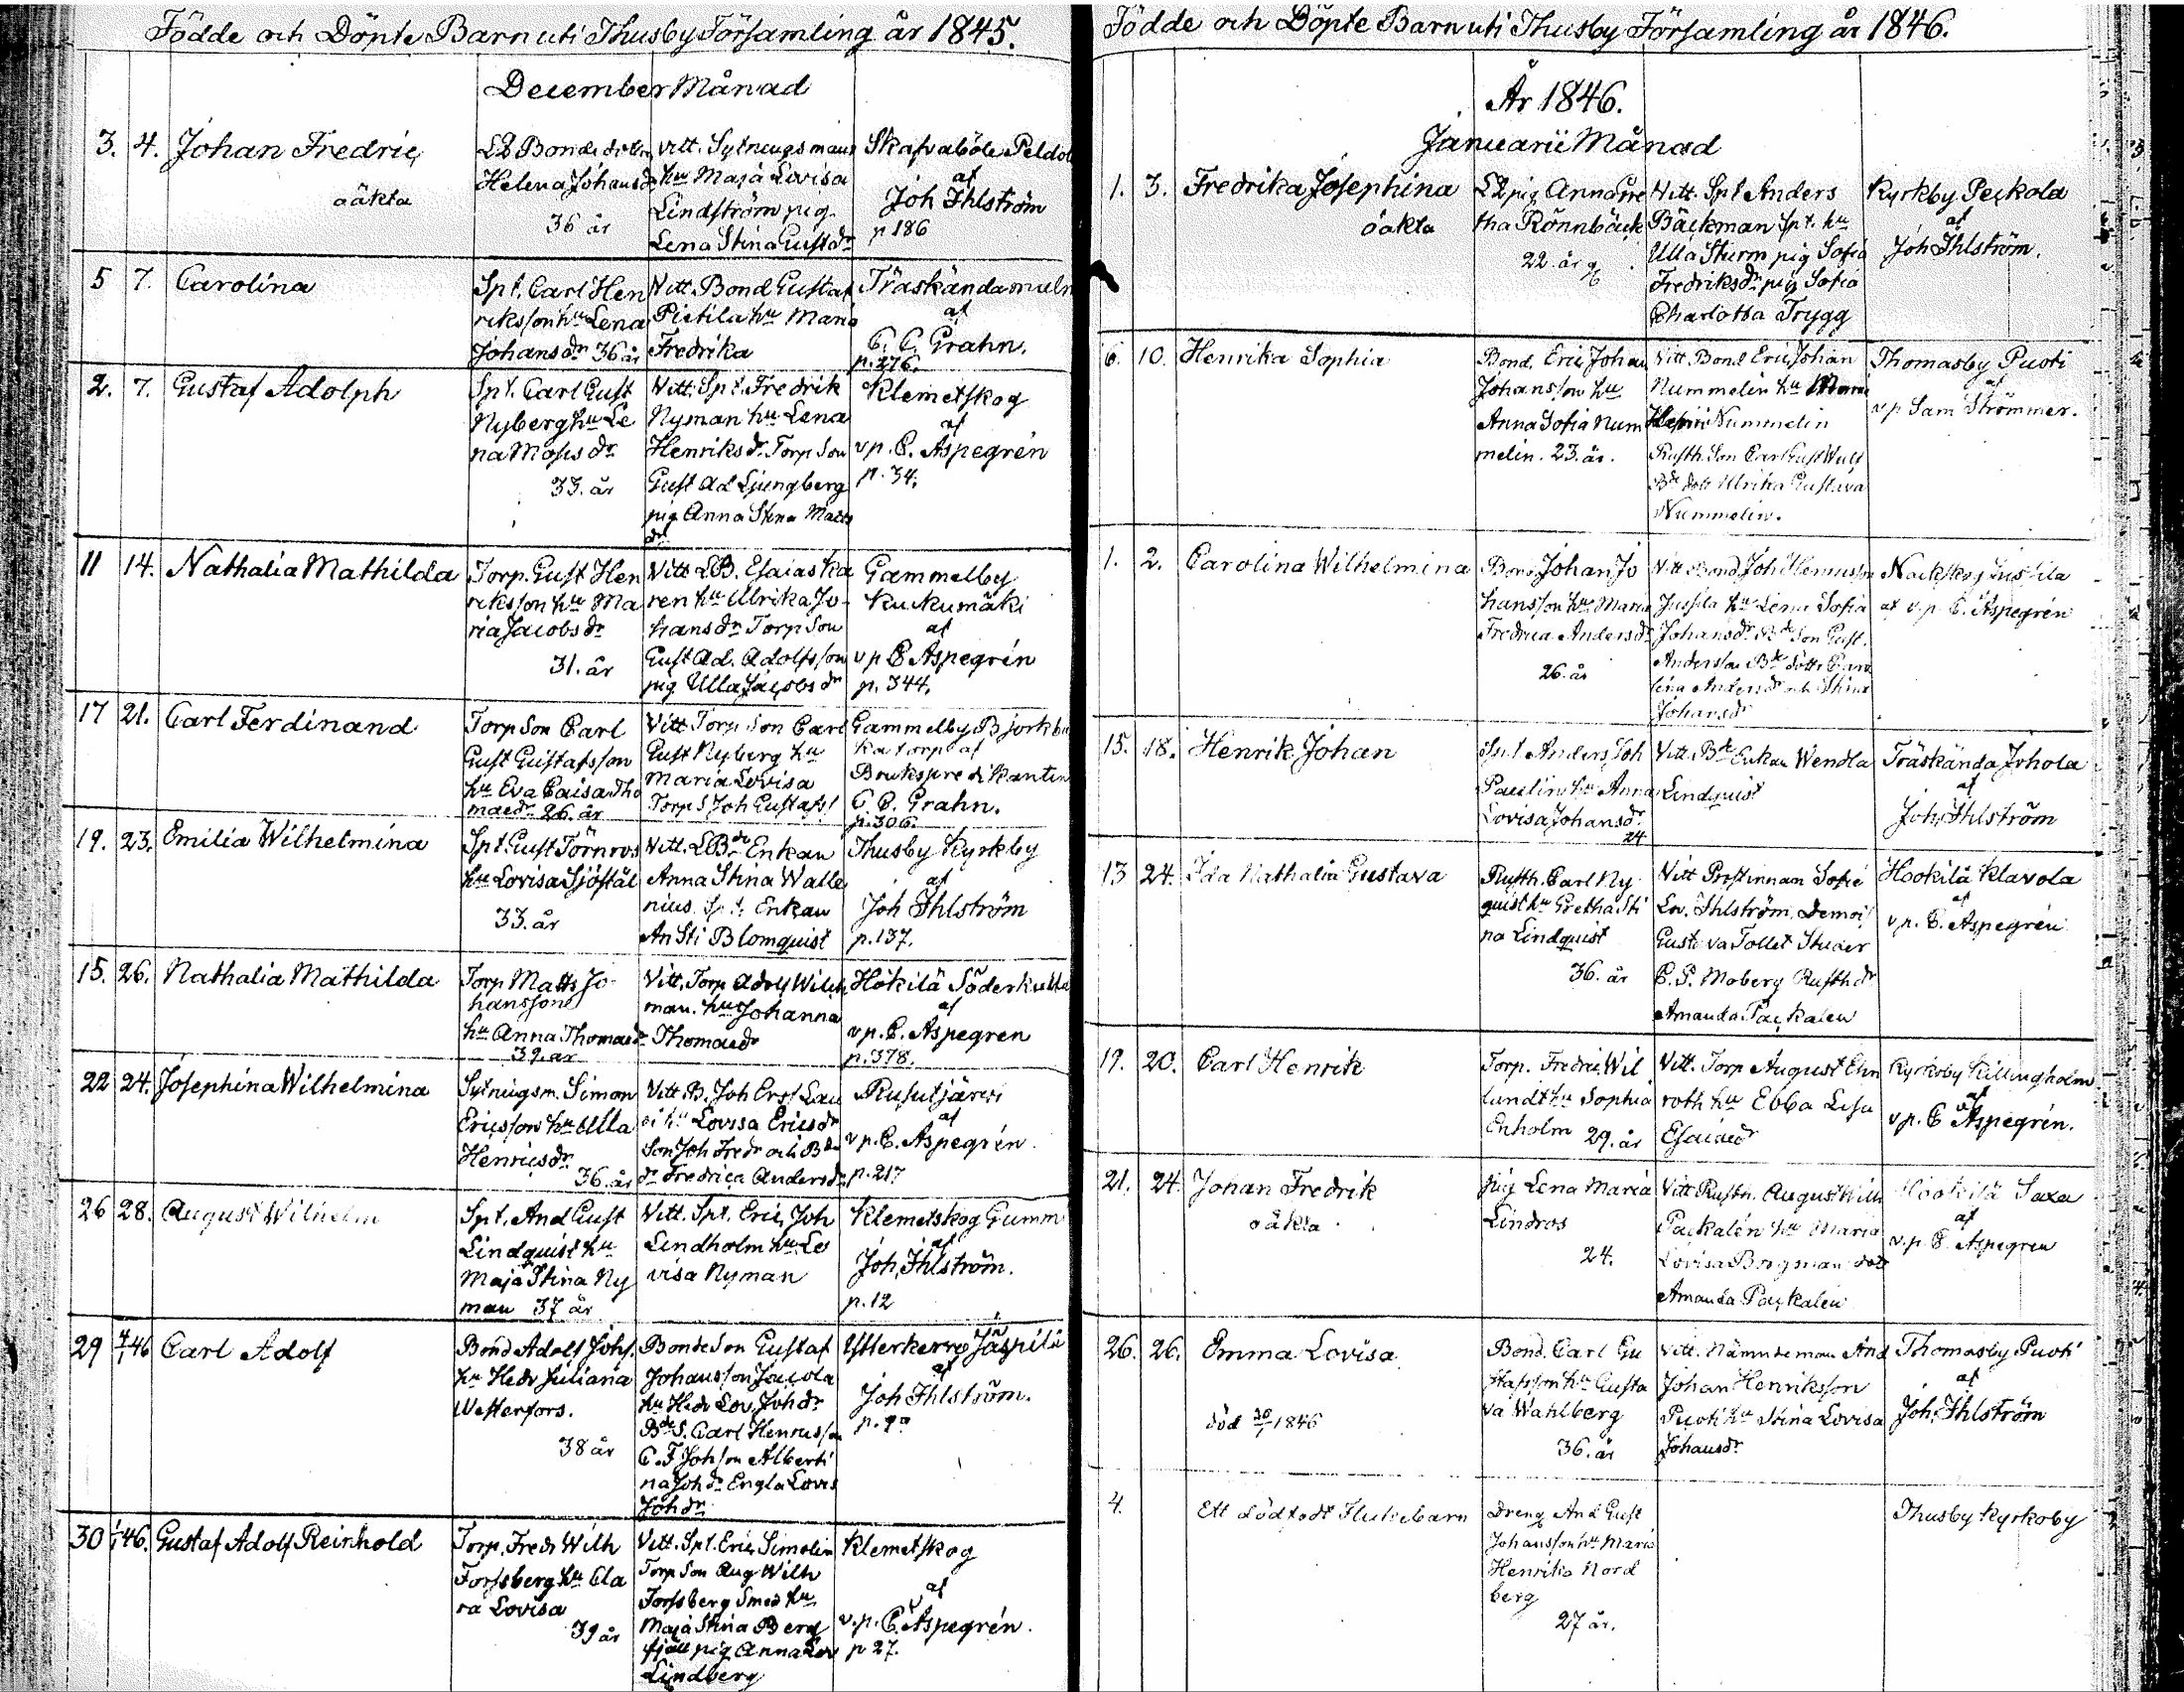 Födde och Döpte Barn uti Thusby Församling år 1845.
December Månad
3. 4. Johan Fredric
oäkta
Helena Johansdr
36 år
Vitt. Sytningsman
hu Maja Lovisa
Lindström pig.
Lena Stina Gustdr
Skafvaböle
af
Joh Ihlström
p 186
5 7. Carolina
Spt. Carl Hen
riksson hu Lena
Johansdr 36 år
Vitt. Bond Gustaf
Pietila hu Maria
Fredrika
Träskända
af
C. C. Grahn.
p. 276.
2. 7. Gustaf Adolph
Spt. Carl Gust
Nyberg hu Le
na Mosisdr
33. år
Vitt. Spt. Fredrik
Nyman hu Lena
Henriksdr Torp Son
Gust Ad Ljungberg
pig Anna Stina Matts
dr
Klemetskog
af
v p. C. Aspegrén
p. 34.
11 14. Nathalia Mathilda
Torp. Gust Hen
riksson hu Ma
ria Jacobsdr
31. år
Vitt LB. Esaias Ka
ren hu Ulrika Jo-
hansdr Torp Son
Gust Ad. Adolfsson
pig Ulla Jacobsdr
Gammelby
Kuckumäki
af
v p C Aspegrén
p. 344.
17 21. Carl Ferdinand
Torp Son Carl
Gust Gustafsson
hu Eva Caisa Tho
maedr 26 år
Vitt Torp Son Carl
Gust Nyberg hu
Maria Lovisa
Torp S Joh Gustafs
Gammelby Bjorkba
ka torp af
Brukspredikanten
C. C. Grahn.
p. 306.
19. 23. Emilia Wilhelmina
Spt. Gust Törnros
hu Lovisa Sjöstål
33. år
Vitt. LBde Enkan
Anna Stina Walle
nius. Spt. Enkan
An Sti Blomquist
Thusby Kyrkby
af
Joh Ihlström
p. 137.
15. 26. Nathalia Mathilda
Torp Matts Jo-
hansson
hu Anna Thomaedr
39. år
Vitt. Torp Adolf Wilch
man. hu Johanna
Thomaedr
Hökilä Söderkulla
af
v p. C. Aspegren
p. 378.
22 24. Josephina Wilhelmina
Sytningsm. Simon
Ericsson hu Ulla
Henricsdr
36. år
Vitt B. Joh Erss
hu Lovisa Ericsdr
Son Joh Fredr och Bde
dr Fredrica Andersdr
Rusutjärvi
af
v p. C. Aspegrén.
p. 217
26 28. August Wilhelm
Spt. And Gust
Lindquist hu
Maja Stina Ny
man 37 år
Vitt. Spt. Eric Joh
Lindholm hu Lo
visa Nyman
Klemetskog Gumm
af
Joh. Ihlström.
p. 12
29 4/1 46 Carl Adolf
Bond Adolf Johs.
hu Hedv Juliana
Westerfors.
38 år
Bonde Son Gustaf
Johansson Jacola
hu Hedv Lov. Johdr
Bde S. Carl Henrisson
C. F Johsson Alberti
na Johdr Engla Lovis
Johdr
Ytterkerro Jäspilä
af
Joh Ihlström.
p. 9
30 1/1 46. Gustaf Adolf Reinhold
Torp. Fredr Wilh
Forssberg hu Cla
ra Lovisa
39 år
Vitt. Spt. Eric Simolin
Torp Son Aug Wilh
Forssberg Smed hu
Maja Stina Berg
fjäll pig Anna Lov
Lindberg
Klemetskog
af
v. p. C. Aspegrén.
p 27.
Födde och Döpte Barn uti Thusby Församling år 1846.
År 1846.
Januarii Månad
1. 3. Fredrika Josephina
oäkta
LB pig Anna Gre
tha Rönnbäck
22. år
Vitt. Spt Anders
Bäckman Spt. hu
Ulla Sturm pig Sofia
Fredriksdr pig Sofia
Charlotta Trygg
Kyrkby Peckola
af
Joh Ihlström.
6. 10. Henrika Sophia
Bond. Eric Johan
Johansson hu
Anna Sofia Num
melin. 23. år.
Vitt. Bond Eric Johan
Nummelin hu Maria
Nummelin
Rusth. Son Carl Gust
Bde dott Ulrika Gustava
Nummelin.
Thomasby Puoti
af
v p Sam Strömmer.
1. 2. Carolina Wilhelmina
Bond Johan Jo
hansson hu Maria
Fredrica Andersdr
26. år
Vitt Bond Joh Henricsson
Jussila hu Lena Sofia
Johansdr Bde Son Gust.
Andersson Bde dottr Caro
lina Andersdr och Stina
Johansdr
Nackskog Jussila
af v. p. C. Aspegrén
15. 18. Henrik Johan
Spt Anders Joh
Paulin hu Anna
Lovisa Johansdr
24
Vitt. Bde Enkan Wendla
Lindquist
Träskända Johola
af
Joh. Ihlström
13 24. Ida Nathalia Gustava
Rusth. Carl Ny
quist hu Gretha Sti
na Lindquist
36. år
Vitt Prostinnan Sofie
Lov. Ihlström, Demois
Gustava Tollet Studer
C. G. Moberg Rusthdr
Amanda Packalen
Hookilä Klavola
af
v. p. C. Aspegrén
19. 20. Carl Henrik
Torp. Fredric Wil
lundt hu Sophia
Enholm 29. år
Vitt. Torp August Ehn
roth hu Ebba Lisa
Esaiaedr
Kyrkoby Killingholm
af
v p. C Aspegrén.
21. 24. Johan Fredrik
oäkta
pig Lena Maria
Lindros
24.
Vitt Rusth. August Wilh
Packalén hu Maria
Lovisa Borgman dott
Amanda Packalen
Hookilä Saxa
af
v. p. C. Aspegren
26. 26. Emma Lovisa
död 30/1 1846
Bond. Carl Gu
stafsson hu Gusta
va Wahlberg
36. år
Vitt. Nämndeman And
Johan Henriksson
Puoti hu Stina Lovisa
Johansdr
Thomasby Puoti
af
Joh. Ihlström
4. Ett dödfödt Flickebarn
Dreng And Gust
Johansson hu Maria
Henrika Nord
berg
27 år.
Thusby Kyrkoby